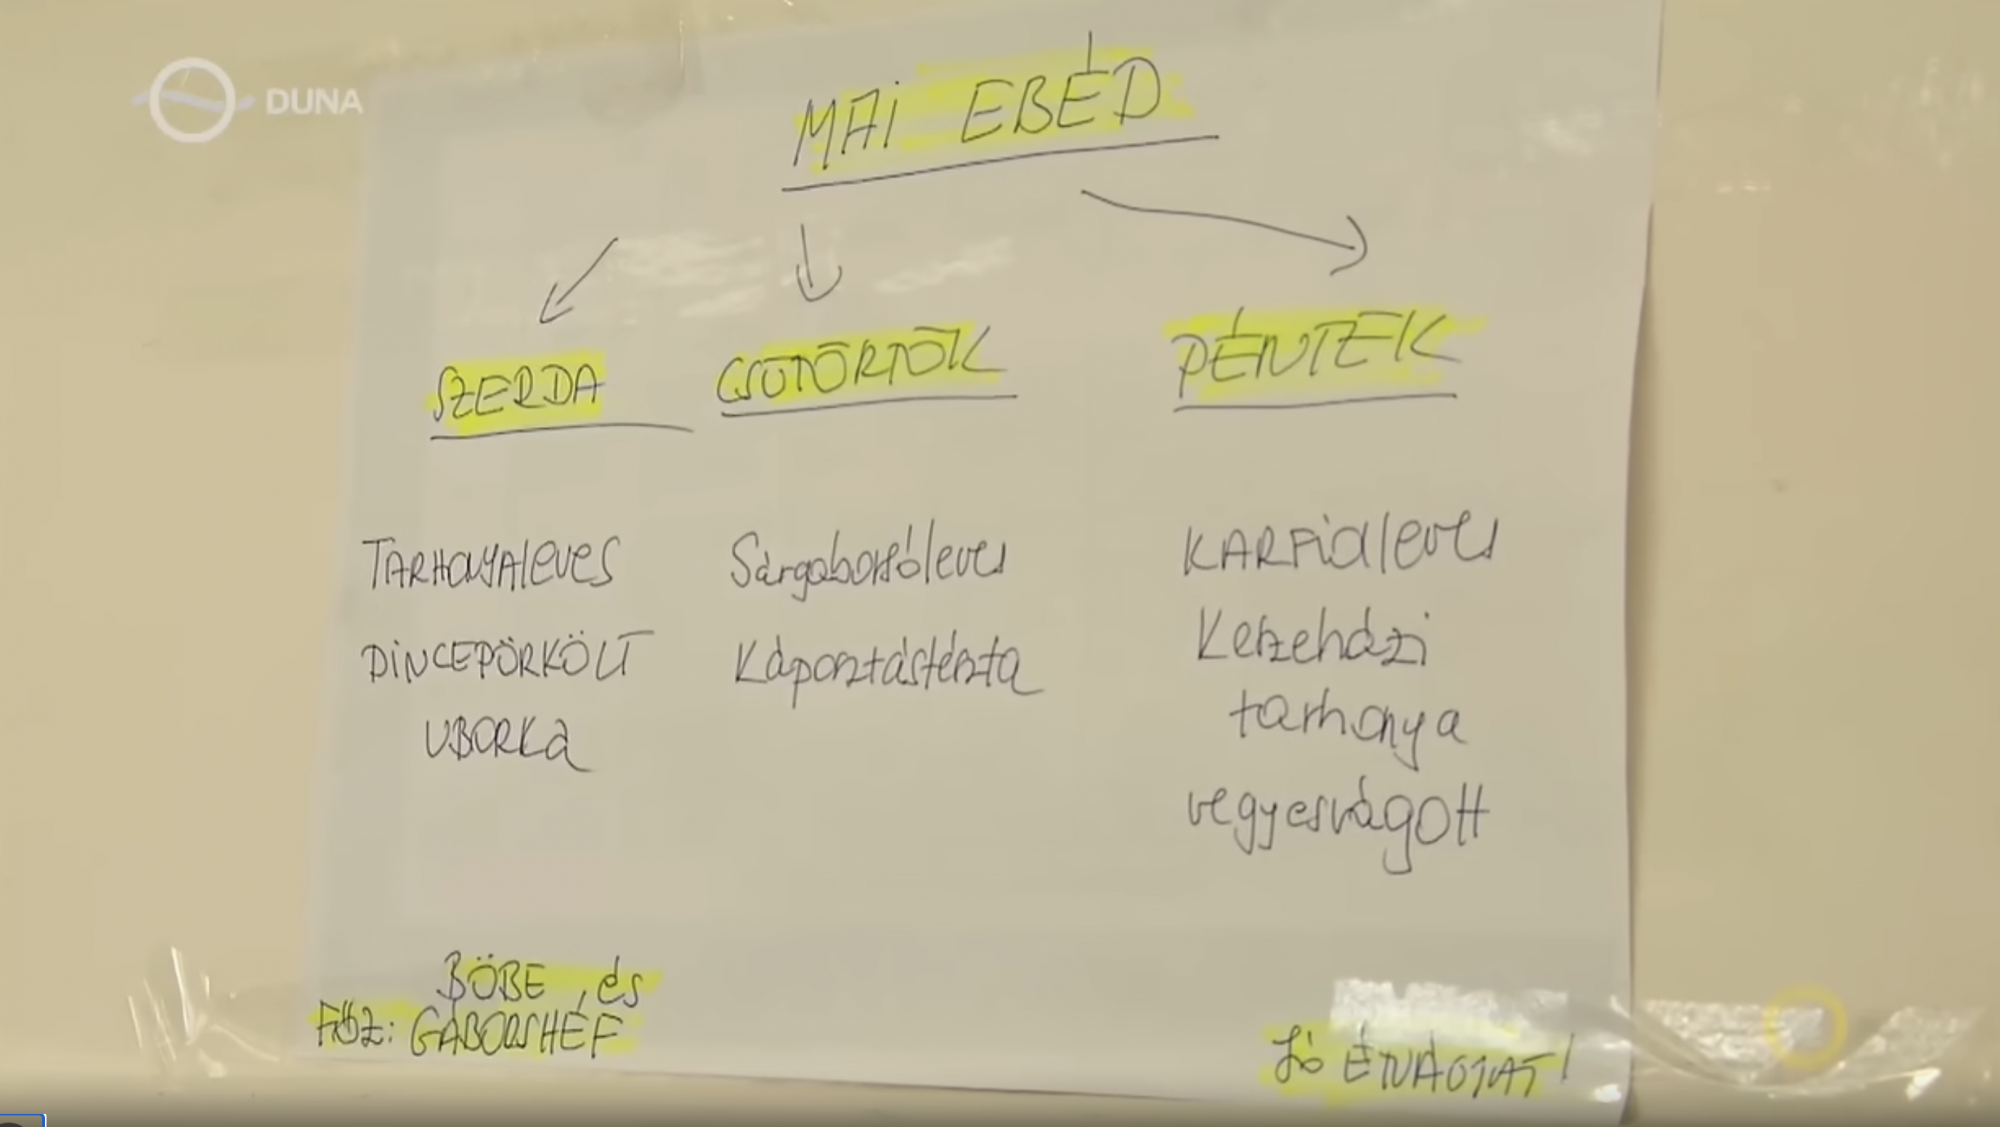 DUNA
MAI EBÉD
SZERDA
TARHONYAleves
DINCEPÖRKÖLT
UBORKa
CSÜTÖRTÖK
Sárgaborsóleves
Káposztástészta
PÉNTEK
KARFiolleves
Keszeházi
tarhonya
vegyesvágott
BÖBE és
FŐZ: GÁBORSHÉF
Jó ÉTVÁGYAT!